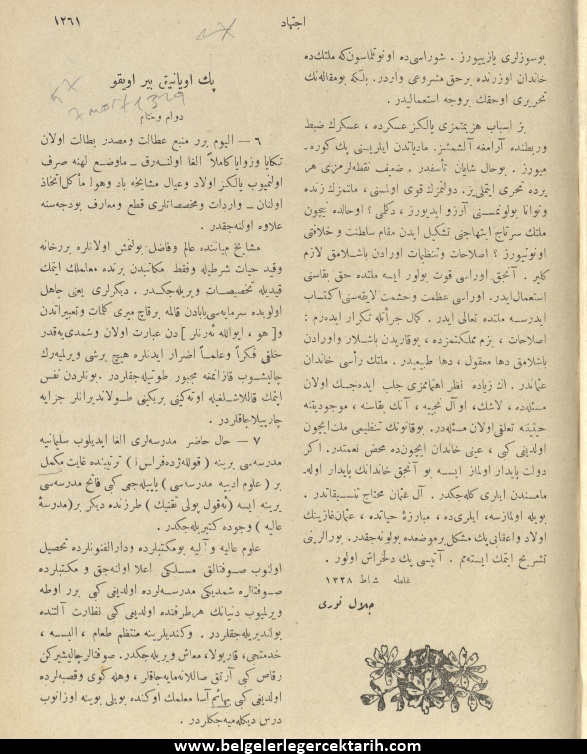 اجتهاد
١٢٦١
بوسوزلری یازییورز . شوراسی‌ده اونوتلماسون‌که ملتك‌ده
خاندان اوزرنده برحق مشروعی واردر. بلکه بومقاله‌نك
تحریری اوحقك بروجه استعمالیدر .
بز اسباب هزیمتمزی یالکز عسکرده ، عسکرك ضبط
وربطنده آرامغه آلشمشز. مادیاتدن ایلریسنی پك کوره‌-
میورز . بوحال شایان تأسفدر . ضعیف نقطه‌لرمزی هر
یرده تحری ایتملی‌یز. دولتمزك قوی اولمسنی ، ملتمزك زنده
وتوانا بولونمسنی آرزو ایدیورز ، دکلمی ؟ اوحالده نیچون
ملتك سرتاج ابتهاجنی تشکیل ایدن مقام سلطنت و خلافتی
اونوتیورز ؟ اصلاحات وتنظیمات اورادن باشلامق لازم
کلیر . آنجق اوراسی قوت بولور ایسه ملتده حق بقاسنی
استعمال‌ایدر. اوراسی عظمت وحشمت لایقه‌سنی‌اکتساب
ایدرسه ملتده تعالی ایدر . کمال جرأتله تکرار ایده‌رم :
اصلاحات ، بزم مملکتمزده ، یوقاریدن باشلار واورادن
باشلامق دها معقول ، دها طبیعیدر . ملتك رأسی خاندان
عثمانیدر . اك زیاده نظر اهتماممزی جلب ایده‌جك اولان
مسئله‌ده ، لاشك، اوآل نجیبه ، آنك بقاسنه ، موجودیتنه
حیثیتنه تعلق‌اولان مسئله‌در. بوقانونك تنظیمی ملت‌ایچون
اولدینی کبی ، عینی خاندان ایچون‌ده محض نعمتدر. اکر
دولت پایدار اولماز ایسه بو آنجق خاندانك پایدار اوله‌-
مامسندن ایلری کله‌جکدر. آل عثمان محتاج تنسیقاتدر .
بویله اولمازسه، ایلری‌ده ، مبارزۀ حیاتده ، عثمان‌غازینك
اولاد واعقابی‌پك مشکل برموضعده بولونه‌جقدر. بورالرینی
تشریح ایتمك ایسته‌مم . آتیسی پك دلخراش اولور .
غلطه شباط ١٣٢٨
جلال نوری
پك اویانیق بیر اویقو
7 mart 1329
دوام وختام
٦ — الیوم برر منبع عطالت ومصدر بطالت اولان
تکایا وزوایا کاملاً الغا اولنه‌رق ـ ماوضع لهنه صرف
اولنمیوب یالکز اولاد وعیال مشایخه باد وهوا مأکل‌اتخاذ
اولنان ـ واردات ومخصصاتلری قطع ومعارف بودجه‌سنه
علاوه اولنه‌جقدر .
مشایخ میاننده عالم وفاضل بولنمش اولانلره بررخانه
وقید حیات شرطیله وفقط مکاتبدن برنده معلملك ایتمك
قیدیله تخصیصات ویریله‌جکدر . دیکرلری یعنی جاهل
اولوبده سرمایه‌سی‌بابادن قالمه برقاچ میری کلمات وتعبیراتدن
و[ هو ، ایوالله ئه‌رنلر ] دن عبارت اولان وشمدی‌یه‌قدر
خلقی فکراً وعلماً اضرار ایدنلره هیچ برشی ویرلمیه‌رك
چالیشوب قازانمغه مجبور طوتیله‌جقلردر . بونلردن نفس
ایتمك قالالاشلغیله اوته‌کنی بریکنی طولاندیرانلر جزایه
چارپیلاجاقلردر .
٧ — حال حاضر مدرسه‌لری الغا ایدیلوب سلیمانیه
مدرسه‌سی یرینه ( قوللـه‌ژده‌فرانس ) ترتیبنده غایت مکمل
بر ( علوم ادبیه مدرسه‌سی ) یاپیله‌جی کبی فاتح مدرسه‌سی
یرینه ایسه ( ئه‌قول پولی تقنیك ) طرزنده دیکر بر( مدرسۀ
عالیه ) وجوده کتیریله‌جکدر .
علوم عالیه و آلیه بومکتبلرده ودارالفنونلرده تحصیل
اولنوب صوفتالق مسلکی اعلا اولنه‌جق و مکتبلرده
صوفتالره شمدیکی مدرسه‌لرده اولدینی کبی برر اوطه
ویرلمیوب دنیانك هرطرفنده اولدینی کبی نظارت آلتنده
بولندیریله‌جقلردر . وکندیلرینه منتظم طعام ، البسه ،
خدمتجی، قاریولا، معاش ویریله‌جکدر. صوفتالر چالیشیرکن
رقاص کبی آرتق صاللانه‌مایه‌جاقلر ، وهله کوی وقصبه‌لرده
اولدینی کبی بهائم آسا معلمك اوکنده بویلی بوینه اوزانوب
درس دیکله‌میه‌جکلردر .
www.belgelerlegercektarih.com